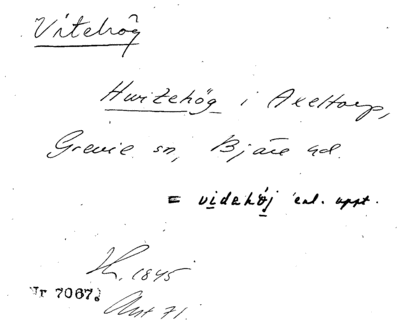 Vitehög
Hwitehög i Axeltorp,
Grevie sn, Bjäre hd.
= videhöj enl. uppt.
H. 1845
Nr 7067.
Ant 71.